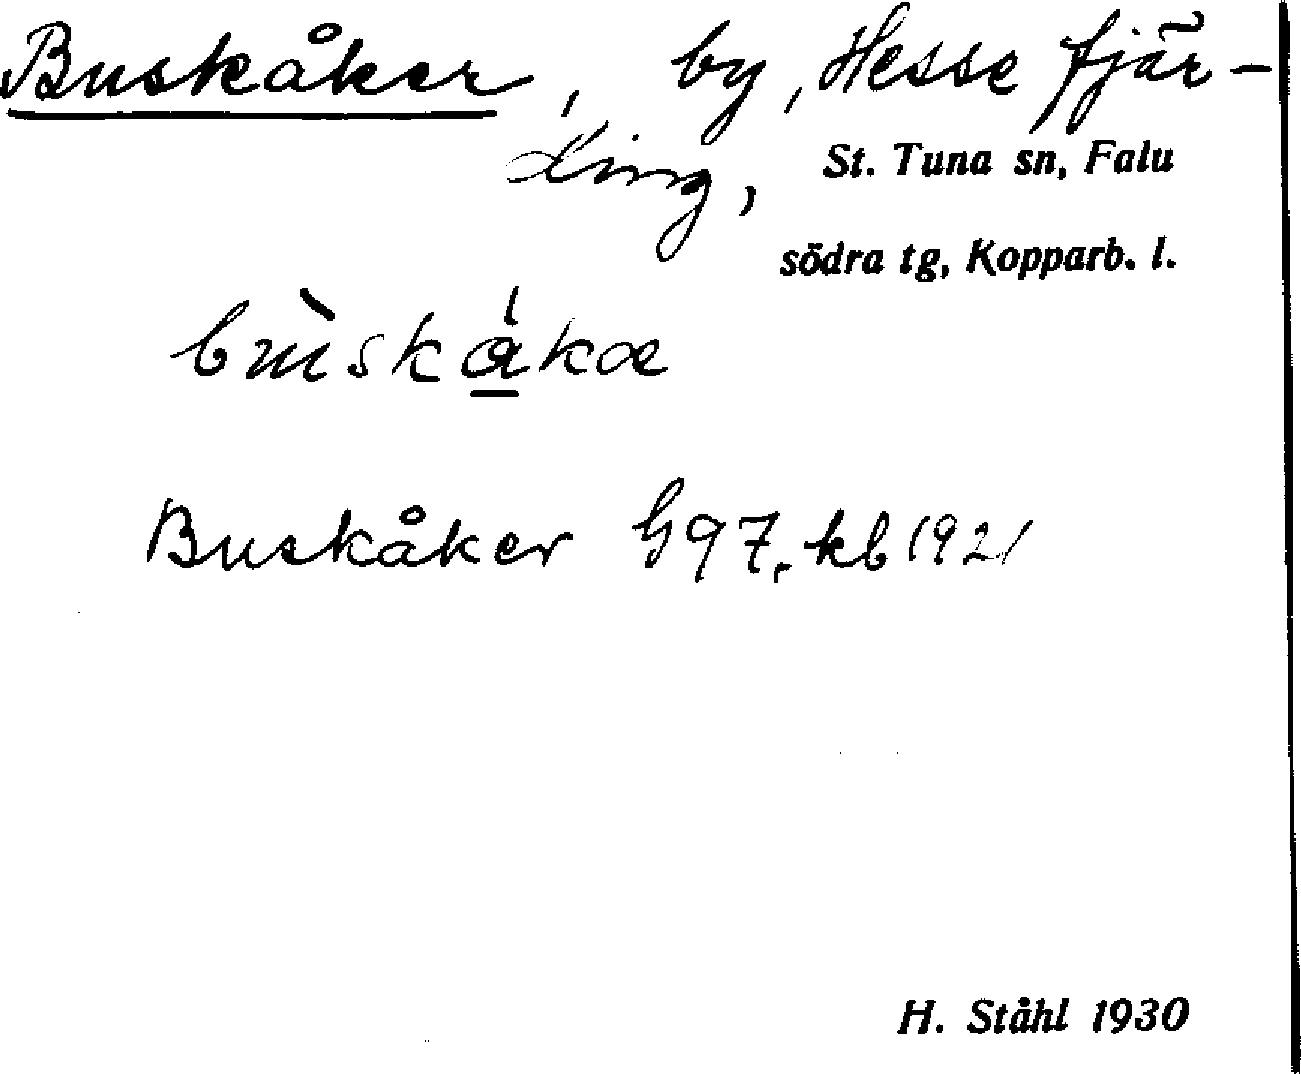 Buskåker, by, Hesse fjär-
ding,
St. Tuna sn, Falu
södra tg, Kopparb. l.
Buskåker G 97, kb 1921
H. Ståhl 1930